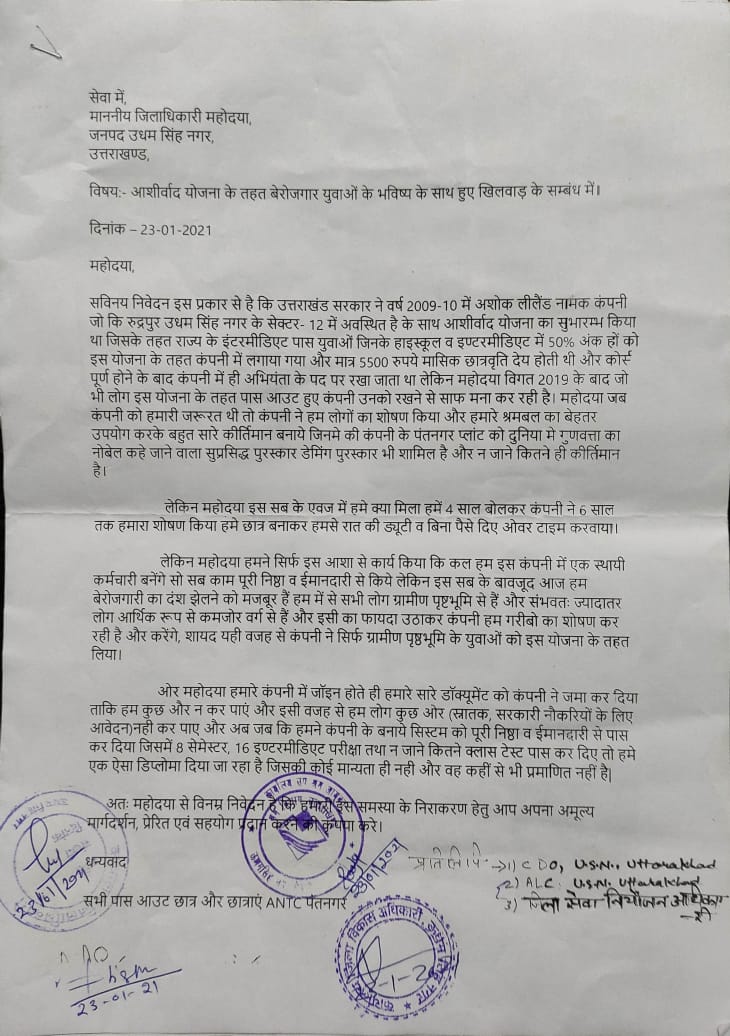 सेवा में,
माननीय जिलाधिकारी महोदया,
जनपद उधम सिंह नगर,
उत्तराखण्ड,
विषय:- आशीर्वाद योजना के तहत बेरोजगार युवाओं के भविष्य के साथ हुए खिलवाड़ के सम्बंध में।
दिनांक – 23-01-2021
महोदया,
सविनय निवेदन इस प्रकार से है कि उत्तराखंड सरकार ने वर्ष 2009-10 में अशोक लीलैंड नामक कंपनी
जो कि रुद्रपुर उधम सिंह नगर के सेक्टर- 12 में अवस्थित है के साथ आशीर्वाद योजना का सुभारम्भ किया
था जिसके तहत राज्य के इंटरमीडिएट पास युवाओं जिनके हाइस्कूल व इण्टरमीडिएट में 50% अंक हों को
इस योजना के तहत कंपनी में लगाया गया और मात्र 5500 रुपये मासिक छात्रवृति देय होती थी और कोर्स
पूर्ण होने के बाद कंपनी में ही अभियंता के पद पर रखा जाता था लेकिन महोदया विगत 2019 के बाद जो
भी लोग इस योजना के तहत पास आउट हुए कंपनी उनको रखने से साफ मना कर रही है। महोदया जब
कंपनी को हमारी जरूरत थी तो कंपनी ने हम लोगों का शोषण किया और हमारे श्रमबल का बेहतर
उपयोग करके बहुत सारे कीर्तिमान बनाये जिनमे की कंपनी के पंतनगर प्लांट को दुनिया मे गुणवत्ता का
नोबेल कहे जाने वाला सुप्रसिद्ध पुरस्कार डेमिंग पुरस्कार भी शामिल है और न जाने कितने ही कीर्तिमान
है।
लेकिन महोदया इस सब के एवज में हमे क्या मिला हमें 4 साल बोलकर कंपनी ने 6 साल
तक हमारा शोषण किया हमे छात्र बनाकर हमसे रात की ड्यूटी व बिना पैसे दिए ओवर टाइम करवाया।
लेकिन महोदया हमने सिर्फ इस आशा से कार्य किया कि कल हम इस कंपनी में एक स्थायी
कर्मचारी बनेंगे सो सब काम पूरी निष्ठा व ईमानदारी से किये लेकिन इस सब के बावजूद आज हम
बेरोजगारी का दंश झेलने को मजबूर हैं हम में से सभी लोग ग्रामीण पृष्टभूमि से हैं और संभवतः ज्यादातर
लोग आर्थिक रूप से कमजोर वर्ग से हैं और इसी का फायदा उठाकर कंपनी हम गरीबो का शोषण कर
रही है और करेंगे, शायद यही वजह से कंपनी ने सिर्फ ग्रामीण पृष्ठभूमि के युवाओं को इस योजना के तहत
लिया।
ओर महोदया हमारे कंपनी में जॉइन होते ही हमारे सारे डॉक्यूमेंट को कंपनी ने जमा कर दिया
ताकि हम कुछ और न कर पाएं और इसी वजह से हम लोग कुछ ओर (स्नातक, सरकारी नौकरियों के लिए
आवेदन)नही कर पाए और अब जब कि हमने कंपनी के बनाये सिस्टम को पूरी निष्ठा व ईमानदारी से पास
कर दिया जिसमें 8 सेमेस्टर, 16 इण्टरमीडिएट परीक्षा तथा न जाने कितने क्लास टेस्ट पास कर दिए तो हमे
एक ऐसा डिप्लोमा दिया जा रहा है जिसकी कोई मान्यता ही नही और वह कहीं से भी प्रमाणित नहीं है|
अतः महोदया से विनम्र निवेदन है कि हमारी इस समस्या के निराकरण हेतु आप अपना अमूल्य
मार्गदर्शन, प्रेरित एवं सहयोग प्रदान करने की कृपया करे।
धन्यवाद
प्रतिलिपि →1) CDO, U.S.N. Uttarakhad
2) ALC. U.S.N. Uttarakhad
सभी पास आउट छात्र और छात्राएं ANTC पंतनगर
3) जिला सेवा नियोजन
23/01/2021
23/01/2021
कार्यालय जिला विकास अधिकारी, ऊधम सिंह नगर
23-01-21